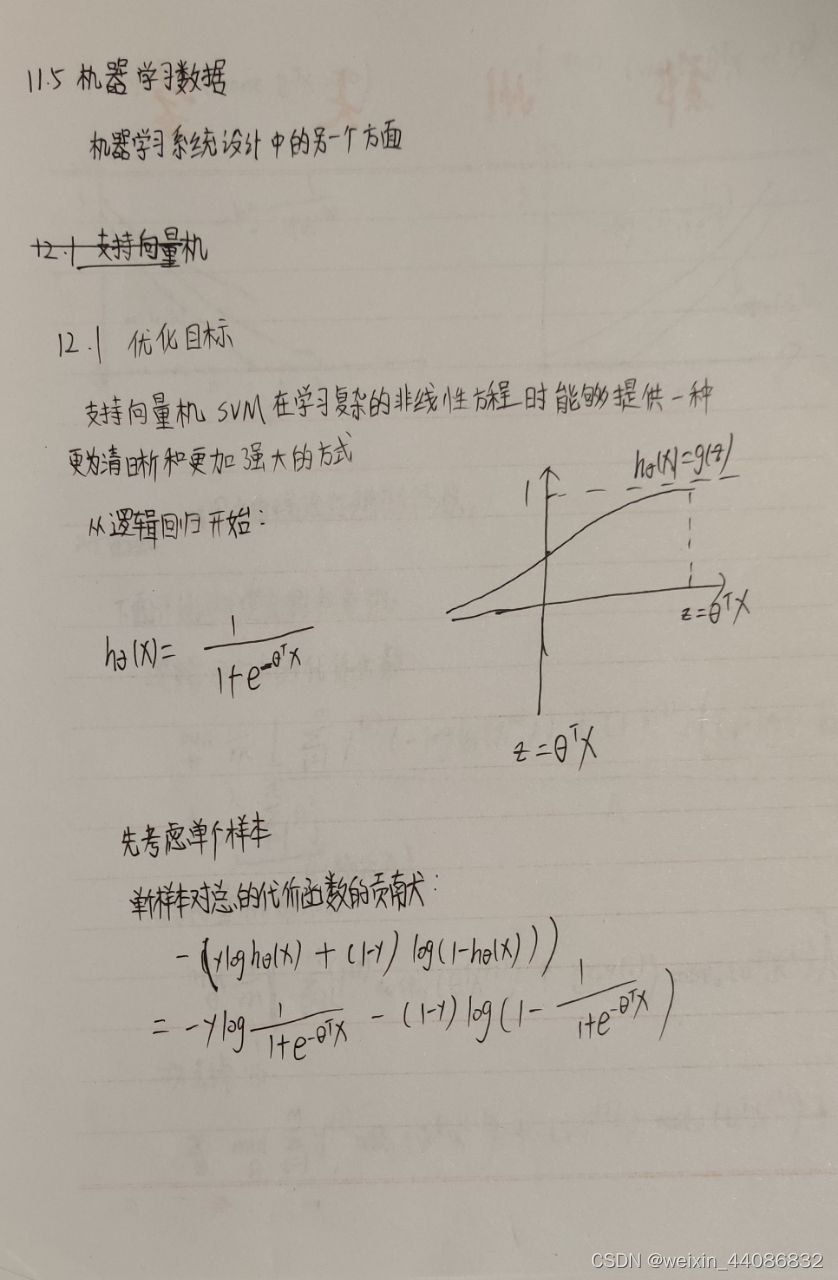 11.5 机器学习数据
机器学习系统设计中的另一个方面
12.1 支持向量机
12.1 优化目标
支持向量机 SVM 在学习复杂的非线性方程时能够提供一种
更为清晰和更加强大的方式
从逻辑回归开始:
1
hθ(x)=g(z)
z=θᵀX
z=θᵀX
hθ(x)= 1/(1+e^(-θᵀX))
先考虑单个样本
单个样本对总的代价函数的贡献:
-(ylog hθ(x) + (1-y) log(1-hθ(x)))
= -ylog 1/(1+e^(-θᵀX)) - (1-y) log(1- 1/(1+e^(-θᵀX)))
CSDN @weixin_44086832